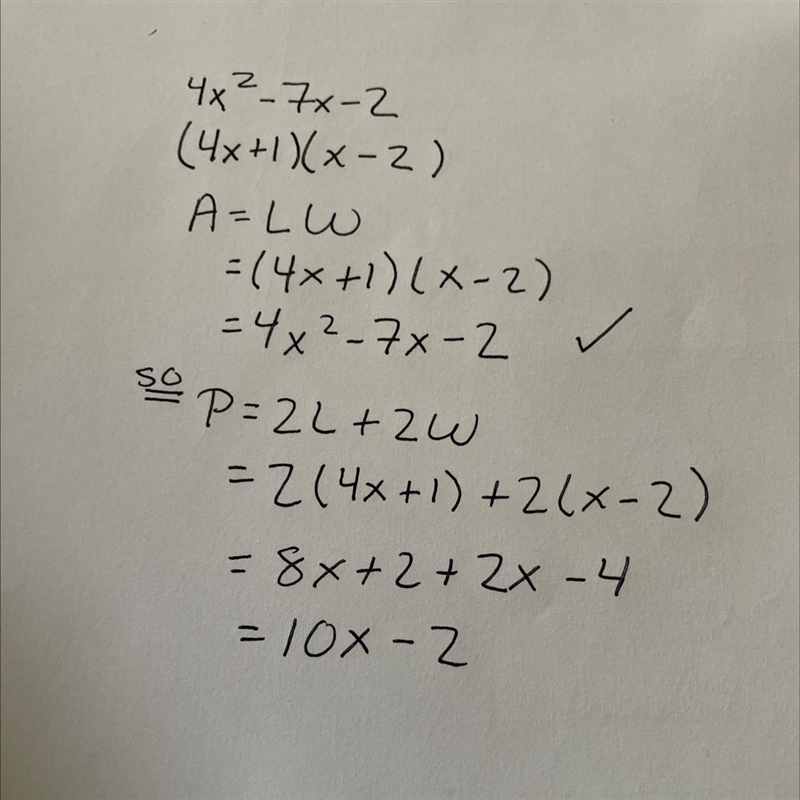 4x²-7x-2
(4x+1)(x-2)
A=LW
=(4x+1)(x-2)
=4x²-7x-2 ✓
so P=2L+2W
=2(4x+1)+2(x-2)
=8x+2+2x-4
=10x-2